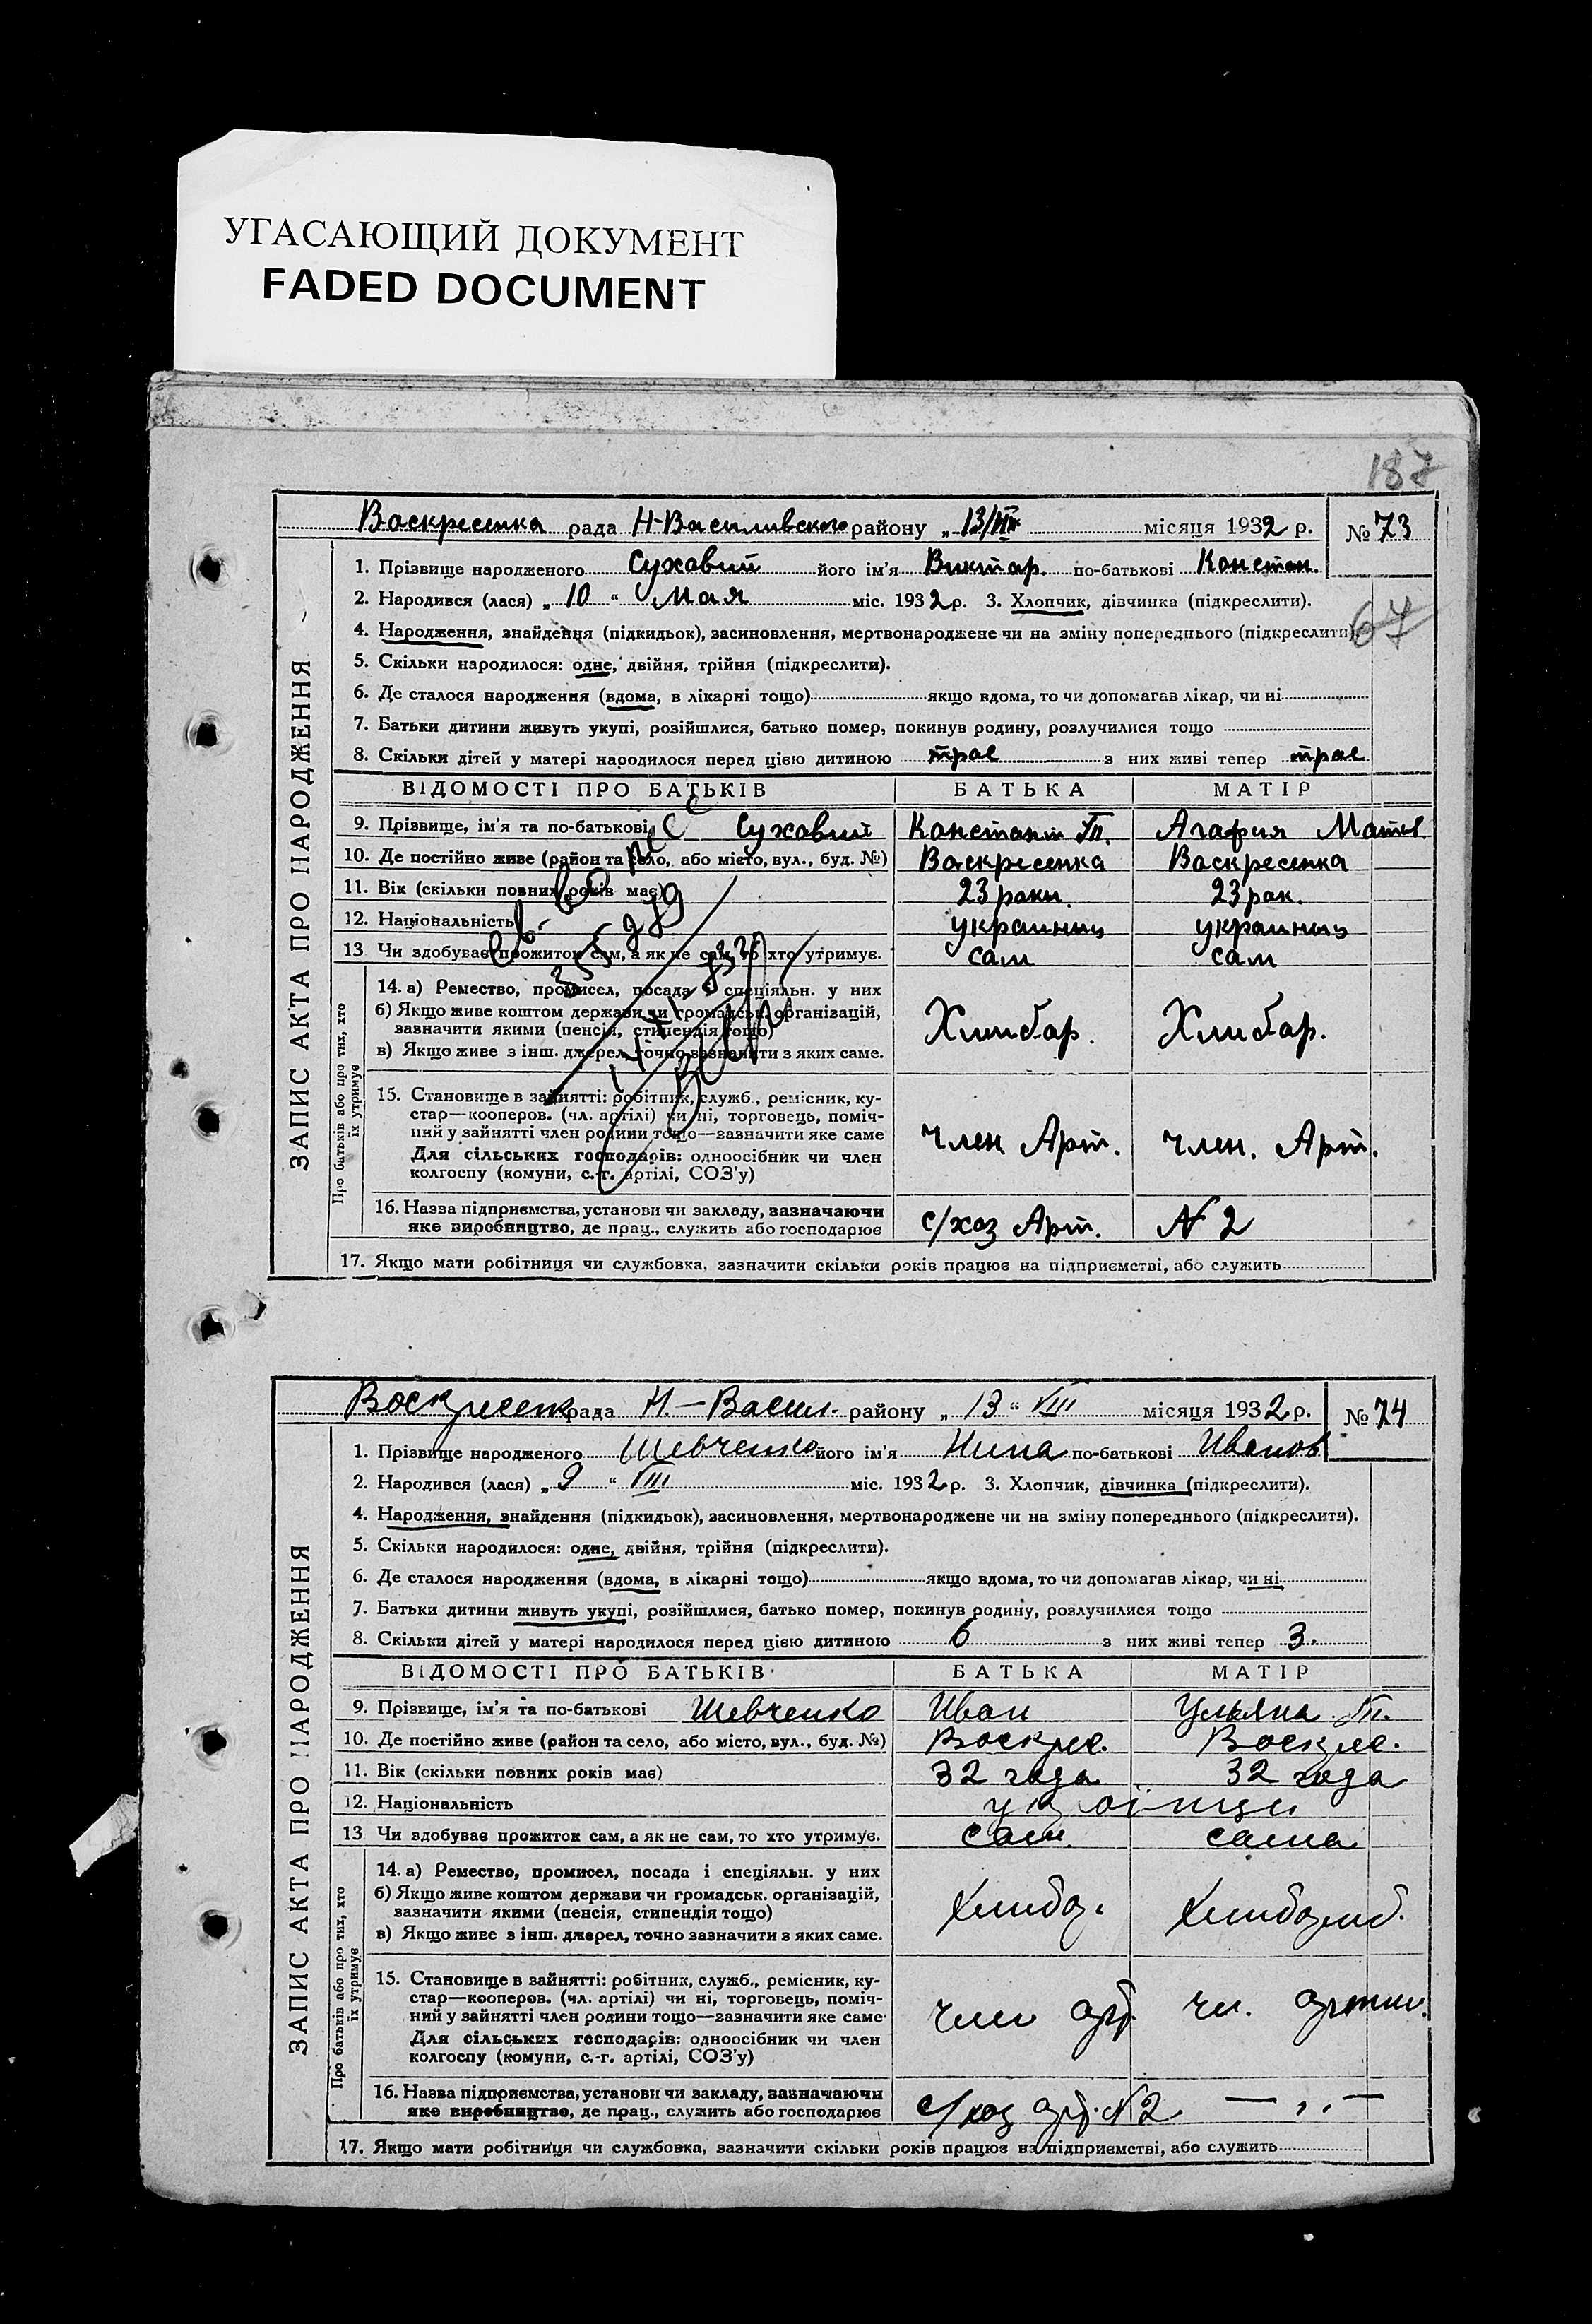 УГАСАЮЩИЙ ДОКУМЕНТ
FADED DOCUMENT
187
Воскресенка рада Н-Василивского району „ 13/VIII місяця 1932 р. № 73
1. Прізвище народженого Суховий його ім'я Виктар. по-батькові Констан.
2. Народився (лася) „ 10 “ Мая міс. 1932 р. 3. Хлопчик, дівчинка (підкреслити).
67
4. Народження, знайдення (підкидьок), засиновлення, мертвонароджене чи на зміну попереднього (підкреслити).
5. Скільки народилося: одне, двійня, трійня (підкреслити).
6. Де сталося народження (вдома, в лікарні тощо) якщо вдома, то чи допомагав лікар, чи ні
7. Батьки дитини живуть укупі, розійшлися, батько помер, покинув родину, розлучилися тощо
8. Скільки дітей у матері народилося перед цією дитиною трое з них живі тепер трое
ВІДОМОСТІ ПРО БАТЬКІВ БАТЬКА МАТІР
9. Прізвище, ім'я та по-батькові Суховий Констант П. Агафия Матв
10. Де постійно живе (район та село, або місто, вул., буд. №) Воскресенка Воскресенка
11. Вік (скільки повних років має) 23 роки. 23 рок.
12. Національність украиниц украиниц
13 Чи здобуває прожиток сам, а як не сам, то хто утримує. сам сам
14. а) Ремество, промисел, посада і спеціяльн. у них
б) Якщо живе коштом держави чи громадськ. організацій,
зазначити якими (пенсія, стипендія тощо)
Хлибар. Хлибар.
в) Якщо живе з інш. джерел, точно зазначити з яких саме.
15. Становище в зайнятті: робітник, служб., ремісник, ку-
стар—кооперов. (чл. артілі) чи ні, торговець, поміч-
ний у зайнятті член родини тощо—зазначити яке саме
член Арт. член. Арт.
Для сільських господарів: одноосібник чи член
колгоспу (комуни, с.-г. артілі, СОЗ'у)
16. Назва підприємства, установи чи закладу, зазначаючи
яке виробництво, де прац., служить або господарює
с/хоз Арт. N 2
17. Якщо мати робітниця чи службовка, зазначити скільки років працює на підприємстві, або служить
ЗАПИС АКТА ПРО НАРОДЖЕННЯ
Про батьків або про тих, хто
їх утримує
Воскресенк рада Н.-Васил. району „ 13 “ VIII місяця 1932 р. № 74
1. Прізвище народженого Шевченко його ім'я Нина по-батькові Иванов
2. Народився (лася) „ 9 “ VIII міс. 1932 р. 3. Хлопчик, дівчинка (підкреслити).
4. Народження, знайдення (підкидьок), засиновлення, мертвонароджене чи на зміну попереднього (підкреслити).
5. Скільки народилося: одне, двійня, трійня (підкреслити).
6. Де сталося народження (вдома, в лікарні тощо) якщо вдома, то чи допомагав лікар, чи ні
7. Батьки дитини живуть укупі, розійшлися, батько помер, покинув родину, розлучилися тощо
8. Скільки дітей у матері народилося перед цією дитиною 6 з них живі тепер 3.
ВІДОМОСТІ ПРО БАТЬКІВ БАТЬКА МАТІР
9. Прізвище, ім'я та по-батькові Шевченко Иван Ульяна П.
10. Де постійно живе (район та село, або місто, вул., буд. №) Воскре. Воскре.
11. Вік (скільки повних років має) 32 года 32 года
12. Національність
13 Чи здобуває прожиток сам, а як не сам, то хто утримує. сам. сама
14. а) Ремество, промисел, посада і спеціяльн. у них
б) Якщо живе коштом держави чи громадськ. організацій,
зазначити якими (пенсія, стипендія тощо)
в) Якщо живе з інш. джерел, точно зазначити з яких саме.
15. Становище в зайнятті: робітник, служб., ремісник, ку-
стар—кооперов. (чл. артілі) чи ні, торговець, поміч-
ний у зайнятті член родини тощо—зазначити яке саме
член арт. чл. артили.
Для сільських господарів: одноосібник чи член
колгоспу (комуни, с.-г. артілі, СОЗ'у)
16. Назва підприємства, установи чи закладу, зазначаючи
яке виробництво, де прац., служить або господарює
с/хоз арт. N 2 — „ —
17. Якщо мати робітниця чи службовка, зазначити скільки років працює на підприємстві, або служить
ЗАПИС АКТА ПРО НАРОДЖЕННЯ
Про батьків або про тих, хто
їх утримує